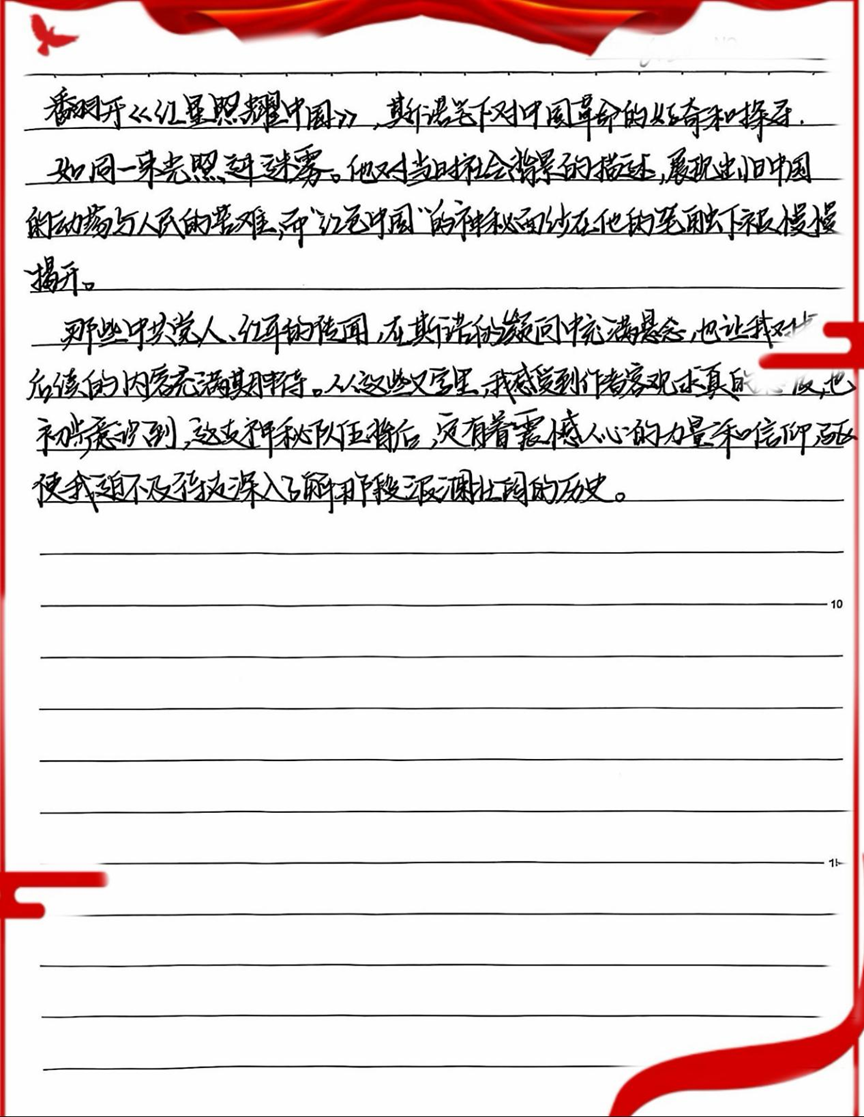 翻开《红星照耀中国》,斯诺笔下对中国革命的好奇和探寻.
如同一束光照进迷雾。他对当时社会背景的描述,展现出旧中国
的动荡与人民的苦难,而"红色中国"的神秘面纱在他的笔触下被慢慢
揭开。
那些中共党人、红军的传闻,在斯诺的疑问中充满悬念,也让我对
后续的内容充满期待。从这些文字里,我感受到作者客观求真的态度,也
初步意识到,这支神秘队伍背后,定有着震撼人心的力量和信仰,
使我迫不及待去深入了解那段波澜壮阔的历史。
10